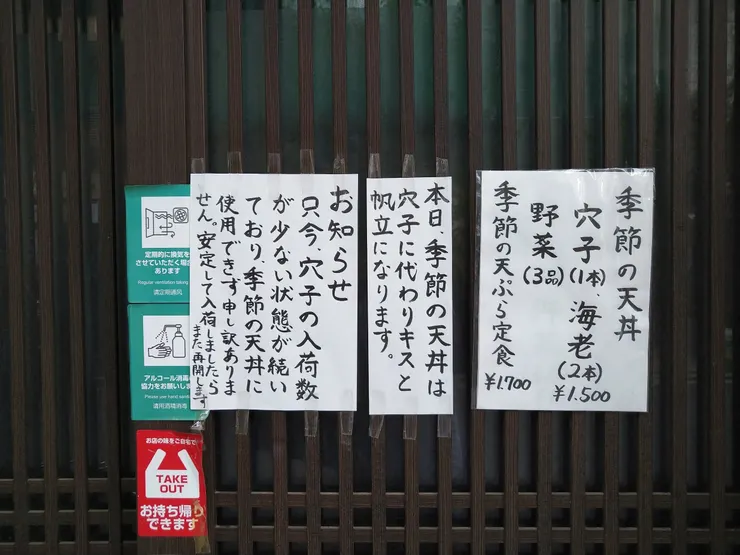 季節の天丼
穴子(1本)、海老(2本)
野菜(3品)
¥1.500
季節の天ぷら定食
¥1700
本日、季節の天丼は
穴子に代わりキスと
帆立になります。
お知らせ
只今、穴子の入荷数
が少ない状態が続い
ており、季節の天丼に
使用できず申し訳ありま
せん。安定して入荷しましたら
また再開します
定期的に換気を
させていただく場合
あります
Regular ventilation taking
请定期通风
アルコール消毒
協力をお願いしま
Please use hand sanit
请用酒精消毒
お店の味をご自宅で
TAKE
OUT
お持ち帰り
できます